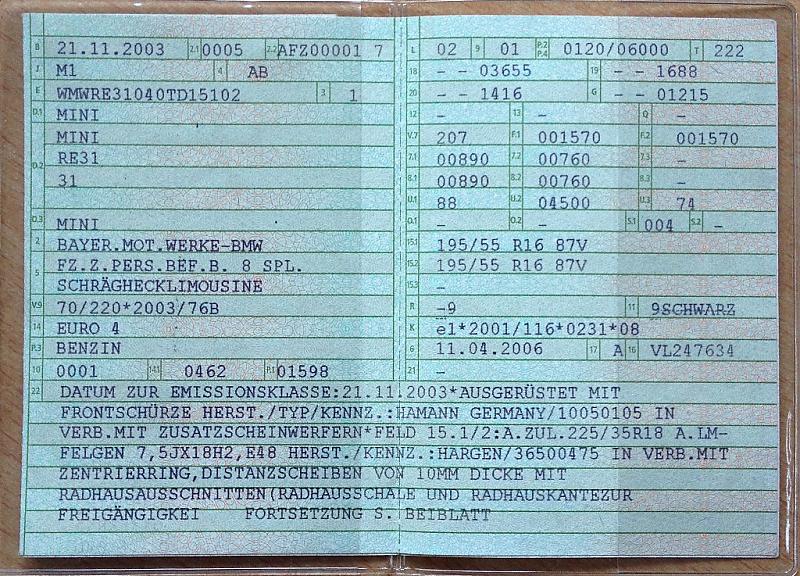 B 21.11.2003 2.1 0005 2.2 AFZ00001 7
J M1 4 AB
E WMWRE31040TD15102 3 1
D.1 MINI
MINI
D.2 RE31
31
D.3 MINI
2 BAYER.MOT.WERKE-BMW
5 FZ.Z.PERS.BEF.B. 8 SPL.
SCHRÄGHECKLIMOUSINE
V.9 70/220*2003/76B
14 EURO 4
P.3 BENZIN
10 0001 14.1 0462 P.1 01598
L 02 9 01 P.2 P.4 0120/06000 T 222
18 - - 03655 19 - - 1688
20 - - 1416 G - - 01215
12 - 13 - Q -
V.7 207 F.1 001570 F.2 001570
7.1 00890 7.2 00760 7.3 -
8.1 00890 8.2 00760 8.3 -
U.1 88 U.2 04500 U.3 74
O.1 - O.2 - S.1 004 S.2 -
15.1 195/55 R16 87V
15.2 195/55 R16 87V
15.3 -
R -9 11 9SCHWARZ
K e1*2001/116*0231*08
6 11.04.2006 17 A 16 VL247634
21 -
22 DATUM ZUR EMISSIONSKLASSE:21.11.2003*AUSGERÜSTET MIT
FRONTSCHÜRZE HERST./TYP/KENNZ.:HAMANN GERMANY/10050105 IN
VERB.MIT ZUSATZSCHEINWERFERN*FELD 15.1/2:A.ZUL.225/35R18 A.LM-
FELGEN 7,5JX18H2,E48 HERST./KENNZ.:HARGEN/36500475 IN VERB.MIT
ZENTRIERRING,DISTANZSCHEIBEN VON 10MM DICKE MIT
RADHAUSAUSSCHNITTEN(RADHAUSSCHALE UND RADHAUSKANTEZUR
FREIGÄNGIGKEI FORTSETZUNG S. BEIBLATT